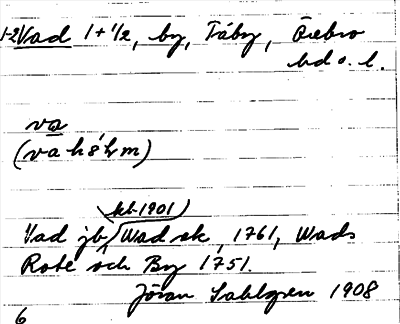 1-2 Vad 1+1/2, by, Täby, Örebro
hd o. l.
va
(va hséhm)
kb 1901
Vad jb, Wad sk, 1761, Wads
Rote och By 1751.
Jöran Sahlgren 1908
6